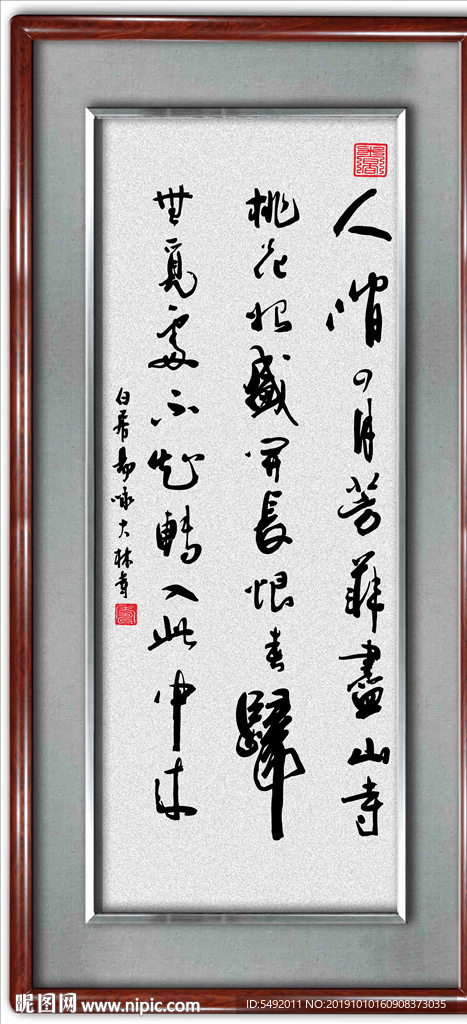 人間四月芳菲盡山寺
桃花始盛開長恨春歸
無覓處不知轉入此中來
白居易咏大林寺
昵图网 www.nipic.com
ID:5492011 NO:20191010160908373035